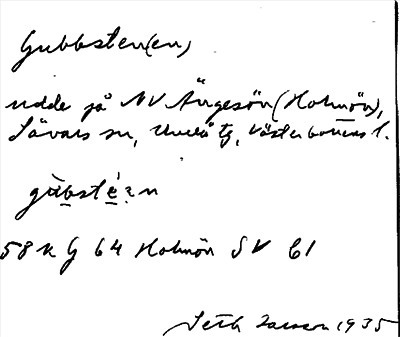 Gubbsten(en)
udde på NV Ängesön (Holmön),
Sävars sn, Umeå tg, Västerbottens l.
gùbsté:n
58 k G 64 Holmön SV C1
Seth Larsson 1935